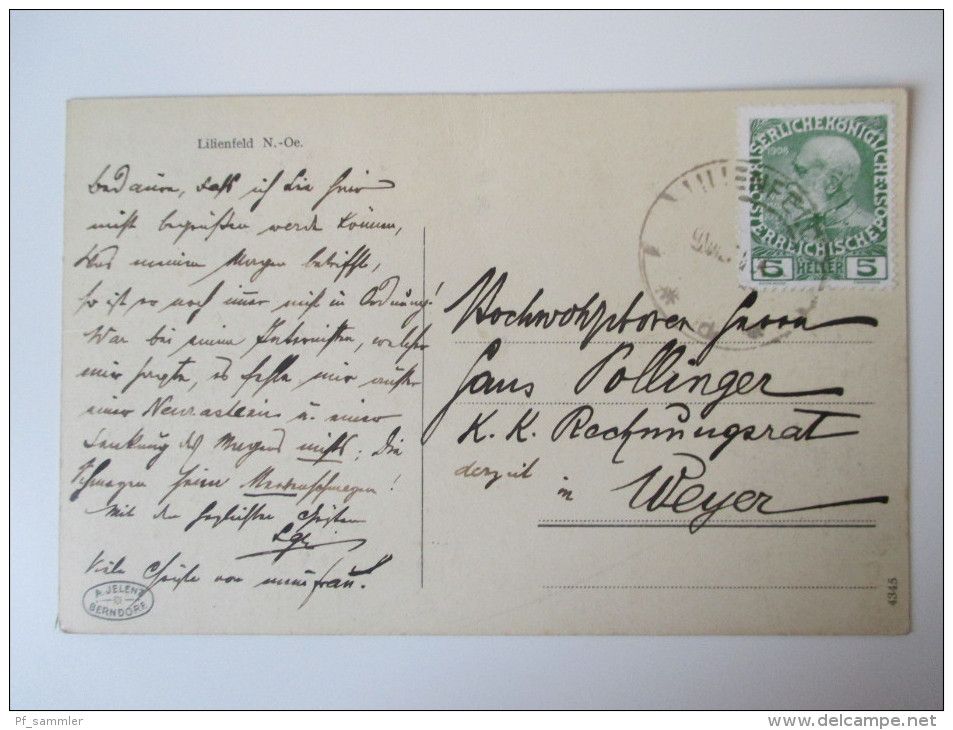 Lilienfeld N.-Oe.
Bedaure, daß ich Sie hier
nicht begrüßen werde können,
Was meinen Magen betrifft,
so ist er noch immer nicht in Ordnung!
War bei einem Internisten, welcher
mir sagte, es fehle mir außer
einer Neurasthenie u. einer
Senkung des Magens nichts; Die
Mit den herzlichsten Grüßen
Viele Grüße von meiner Frau.
A. JELENZ
BERNDORF
KAISERLICHEKÖNIGLICHE
ÖSTERREICHISCHE POST
1908
5 HELLER 5
Hochwohlgeboren Herrn
Hans Pollinger
K. K. Rechnungsrat
derzeit in Weyer
4345
Pf_sammler
www.delcampe.net